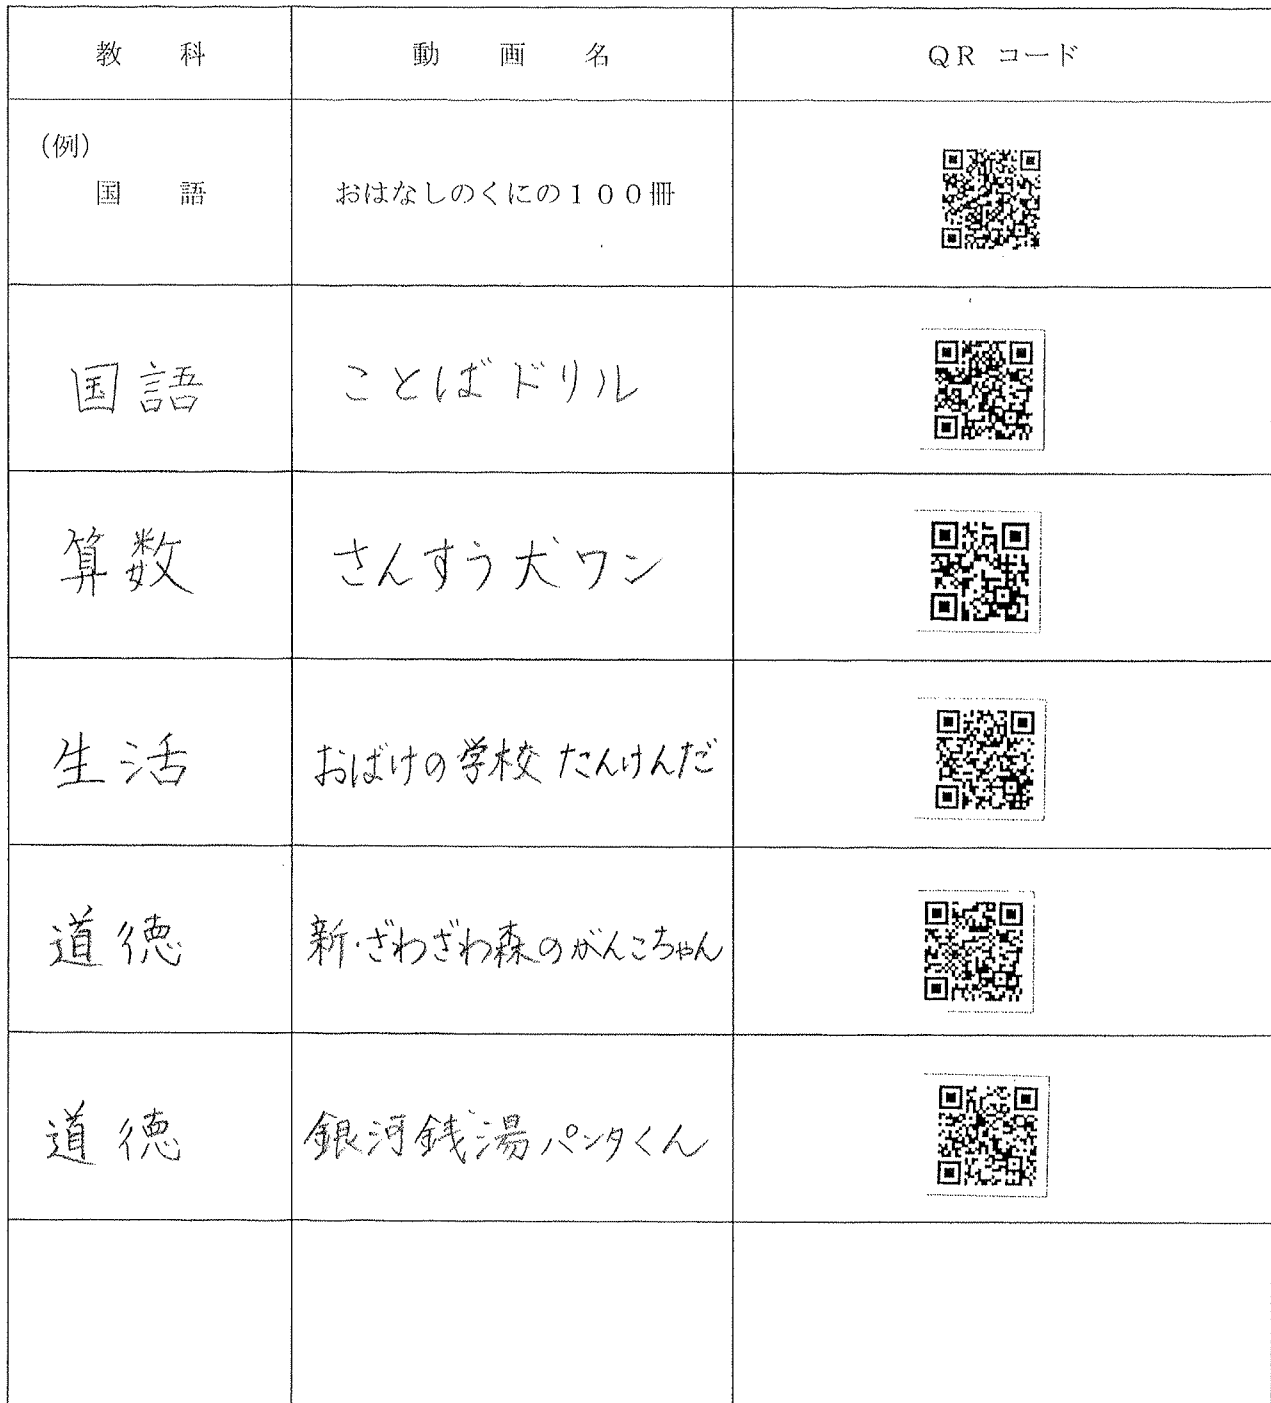 教 科 動 画 名 QR コード
(例)
国 語 おはなしのくにの100冊
国語 ことばドリル
算数 さんすう犬ワン
生活 おばけの学校 たんけんだ
道徳 新・ざわざわ森のがんこちゃん
道徳 銀河銭湯パンタくん